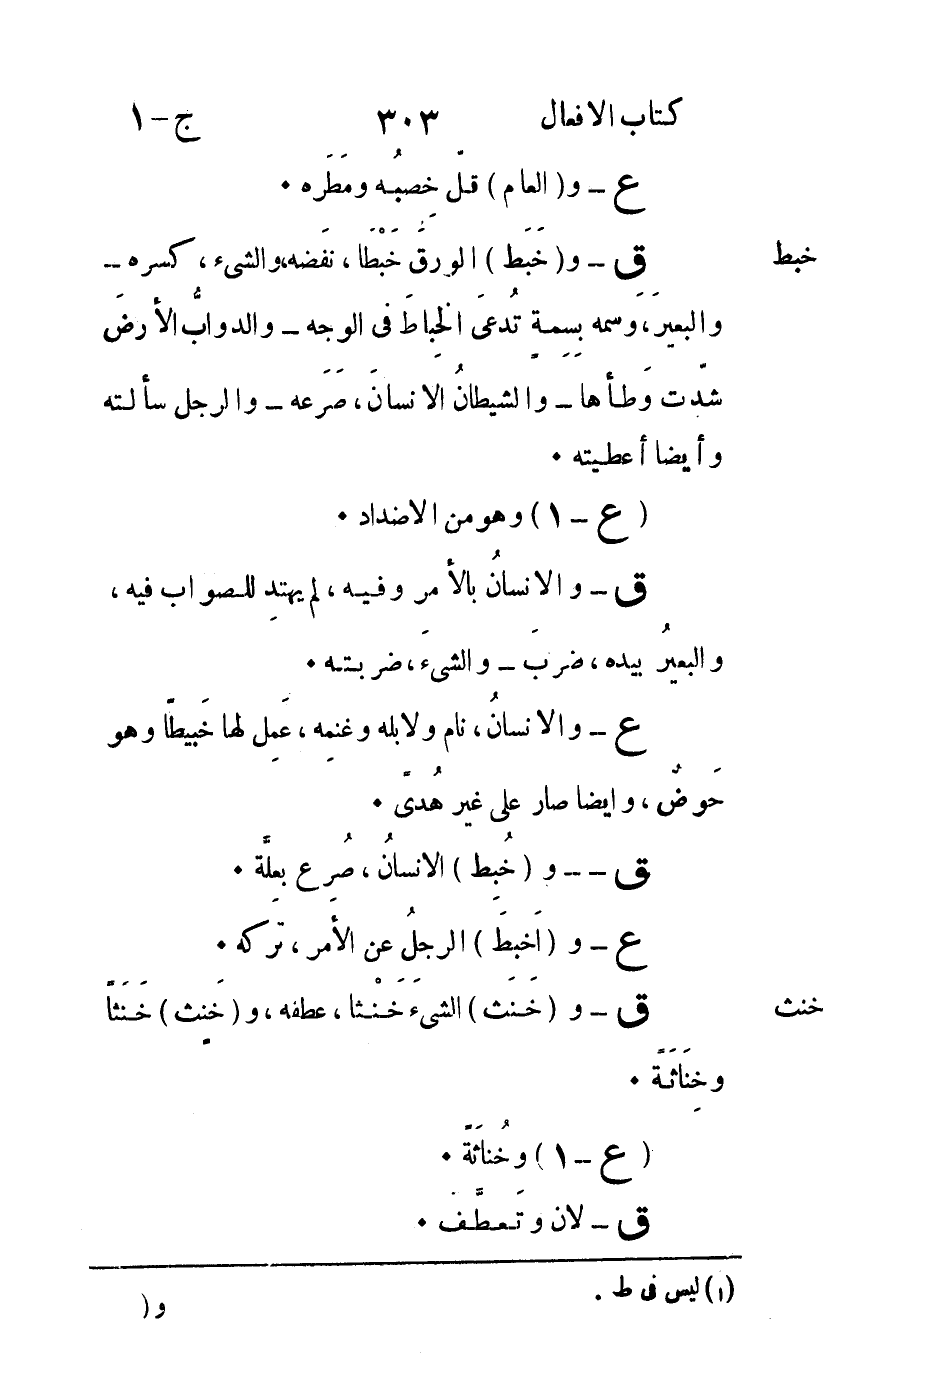 كتاب الافعال ٣٠٣ ج-١
ع – و( العام ) قلّ خِصبُه ومَطَره •
خبط ق – و( خَبَط ) الورقُ خَبْطا ، نَفَضه،والشىء ، كسره –
والبعيرَ ، وَسَمه بِسِمةٍ تُدعىَ الخِباطَ فى الوجه – والدوابُّ الأرضَ
شدّت وَطأها – والشيطانُ الانسانَ ، صَرَعه – والرجل سألته
وأيضا أعطيته •
( ع – ١ ) وهو من الاضداد •
ق – والانسانُ بالأمر وفيه ، لم يهتدِ للصواب فيه ،
والبعيرُ بيده ، ضربَ – والشىءَ ، ضربته •
ع – والانسانُ ، نام ولابله وغنمِه ، عَمِل لها خَبيطًا وهو
حَوضٌ ، وايضا صار على غيرِ هُدىً •
ق – – و ( خُبِط ) الانسانُ ، صُرِع بعِلَّة •
ع – و ( اَخبطَ ) الرجلُ عن الأمر ، تركه •
خنث ق – و ( خَنَث ) الشىءَ خَنْثا ، عطفه ، و ( خَنِث ) خَنَثاً
وخِنَاثَةً •
( ع – ١ ) وخُناثَةً •
ق – لان وتَعطَّفَ •
(١) ليس فى ط .
و (